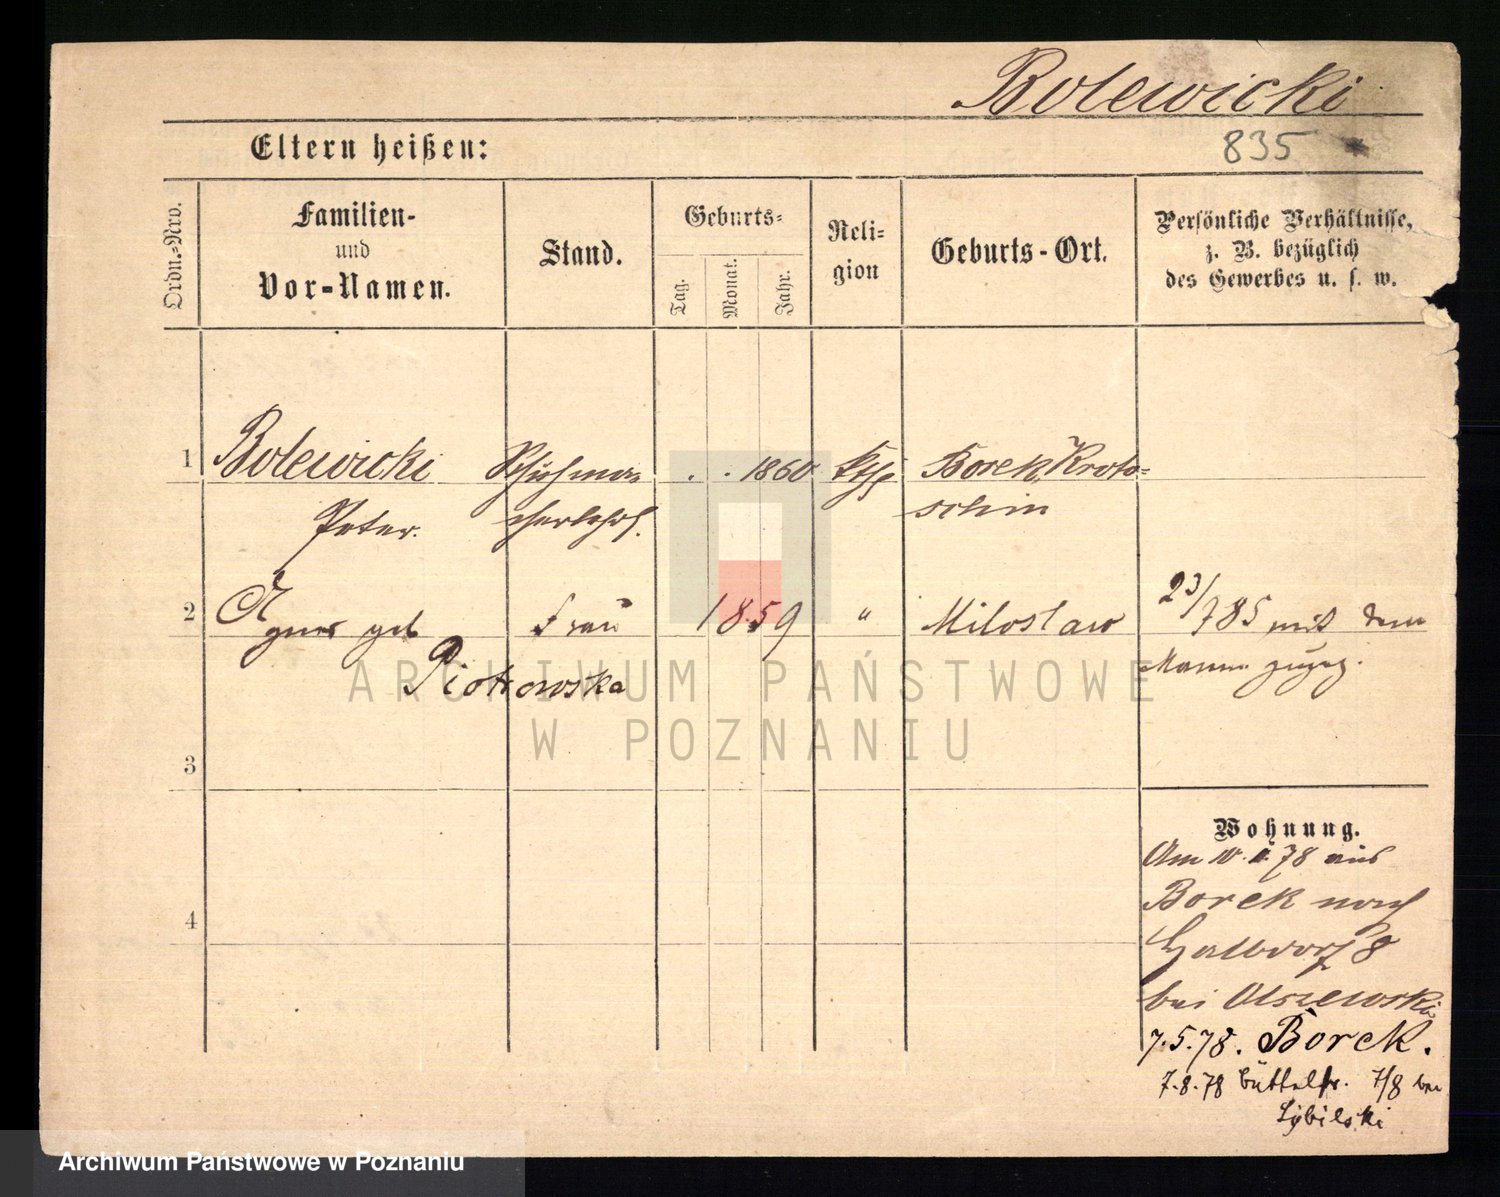 Bolewicki
835
Eltern heißen:
Ordn.-Nro.
Familien-
und
Vor-Namen.
Stand.
Geburts-
Tag.
Monat.
Jahr.
Reli-
gion
Geburts-Ort.
Persönliche Verhältnisse,
z. B. bezüglich
des Gewerbes u. s. w.
1 Bolewicki Schuhma- . . 1860 kth Borek, Kroto-
Peter. cherlehrl. schin
2 Agnes geb Frau 1859 " Miloslaw 23/785 mit dem
Piotrowska Manne zugez.
3
4
Wohnung.
Am 10. 78 aus
Borek nach
Halbdorf 8
bei Olszewski
7.5.78. Borek.
7.8.78 Büttelstr. 7/8 bei
Sybilski
ARCHIWUM PAŃSTWOWE
W POZNANIU
Archiwum Państwowe w Poznaniu